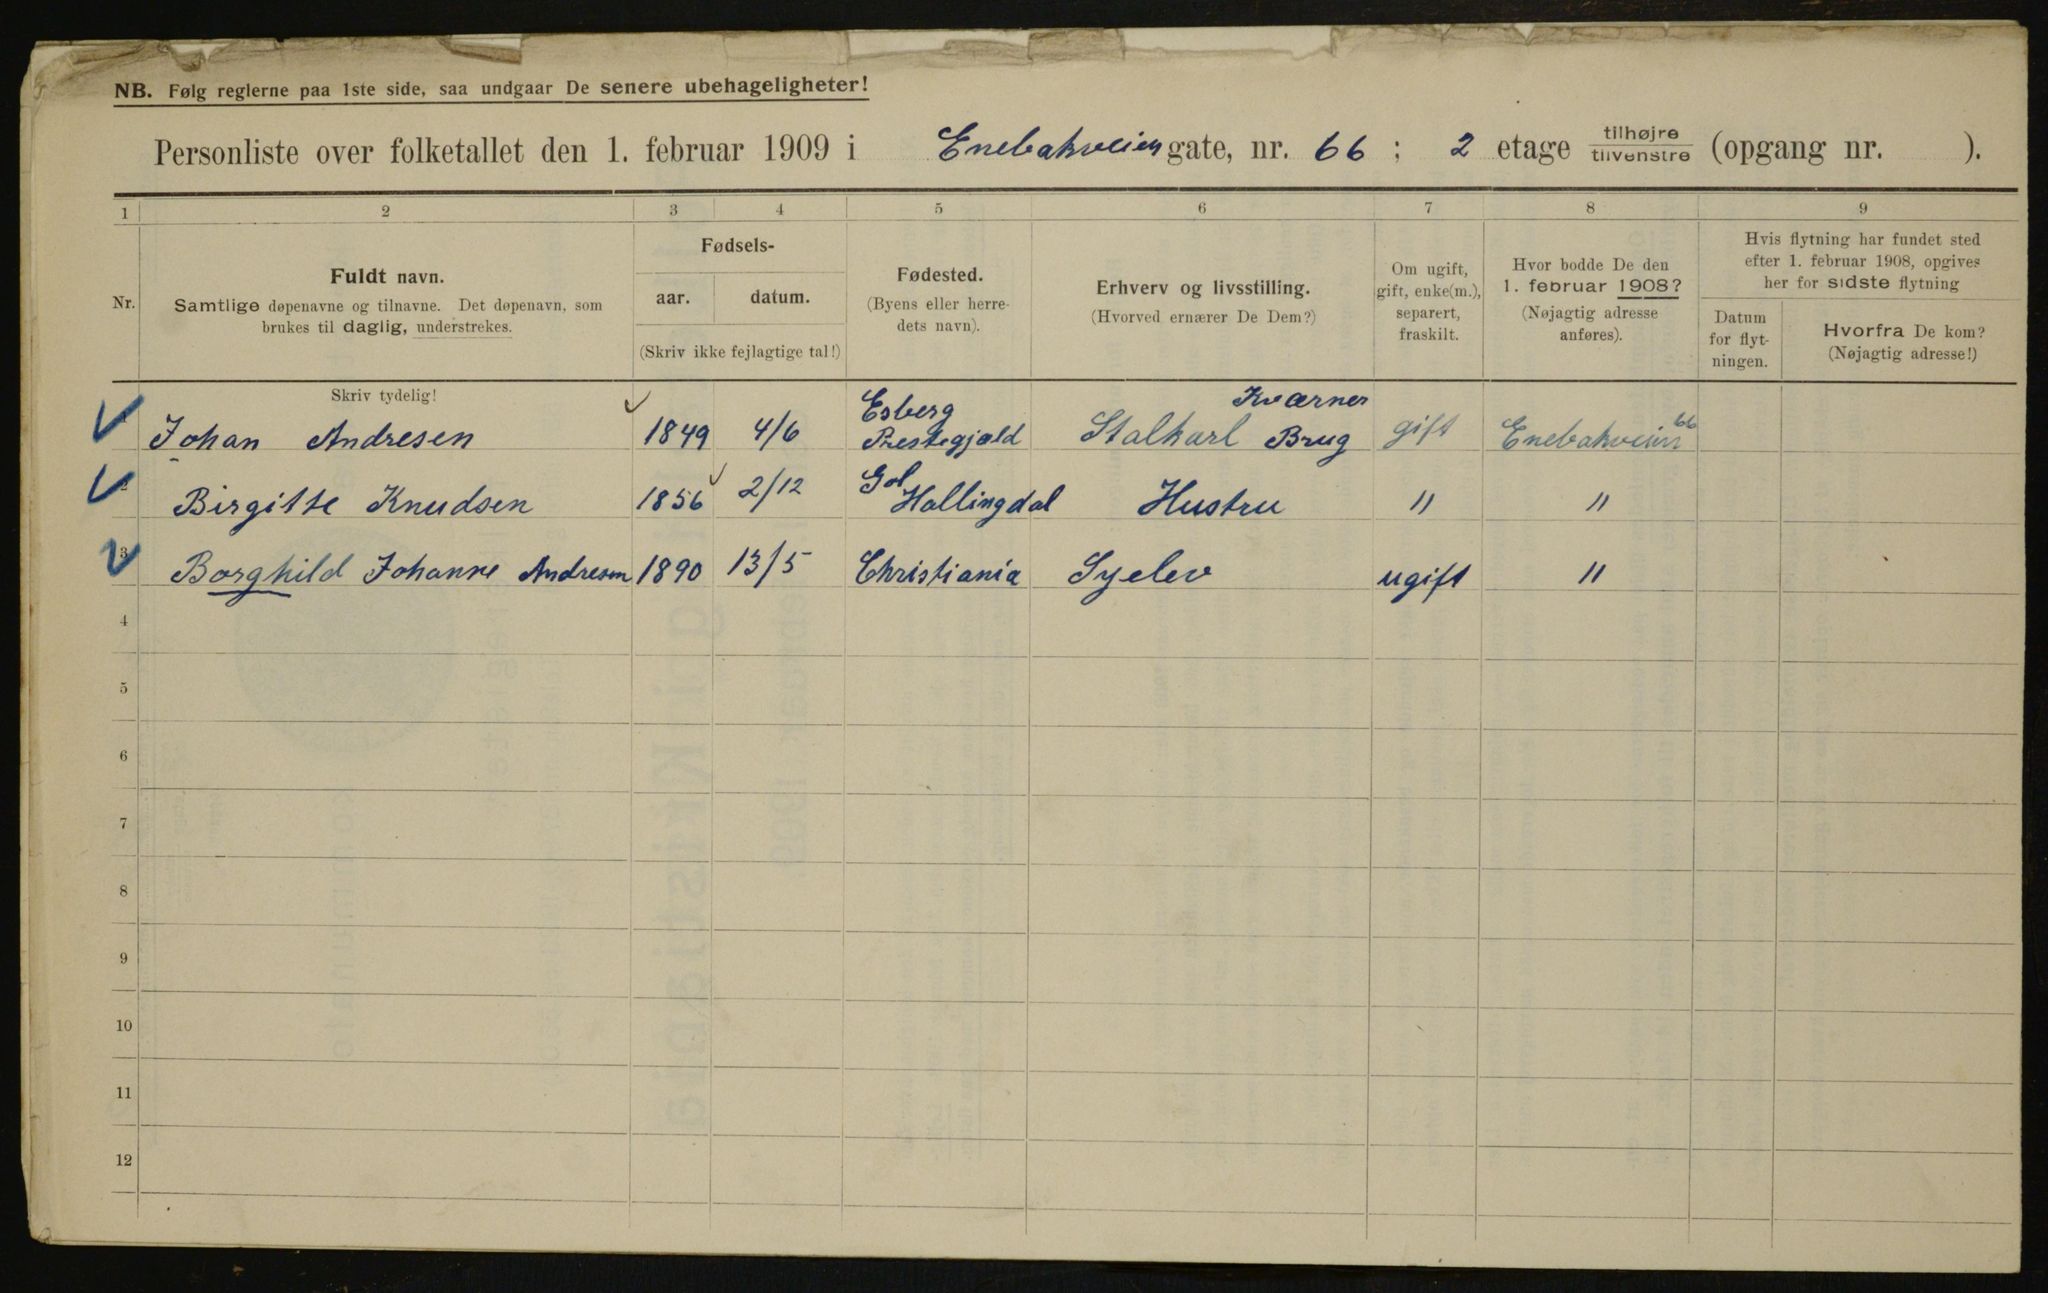 NB. Følg reglerne paa 1ste side, saa undgaar De senere ubehageligheter!
Personliste over folketallet den 1. februar 1909 i Enebakveien gate, nr. 66 ; 2 etage tilhøjre tilvenstre (opgang nr. ).
1 2 3 4 5 6 7 8 9
Nr.
Fuldt navn.
Samtlige døpenavne og tilnavne. Det døpenavn, som
brukes til daglig, understrekes.
Fødsels-
aar. datum.
(Skriv ikke fejlagtige tal!)
Fødested.
(Byens eller herre-
dets navn).
Erhverv og livsstilling.
(Hvorved ernærer De Dem?)
Om ugift,
gift, enke(m.),
separert,
fraskilt.
Hvor bodde De den
1. februar 1908?
(Nøjagtig adresse
anføres).
Hvis flytning har fundet sted
efter 1. februar 1908, opgives
her for sidste flytning
Datum
for flyt-
ningen.
Hvorfra De kom?
(Nøjagtig adresse!)
Skriv tydelig!
Johan Andresen 1849 4/6 Esberg Prestegjæld Stalkarl Kværner Brug gift Enebakveien 66
2 Birgitte Knudsen 1856 2/12 Gol Hallingdal Hustru " "
3 Borghild Johanne Andresen 1890 13/5 Christiania Syelev ugift "
4
5
6
7
8
9
10
11
12